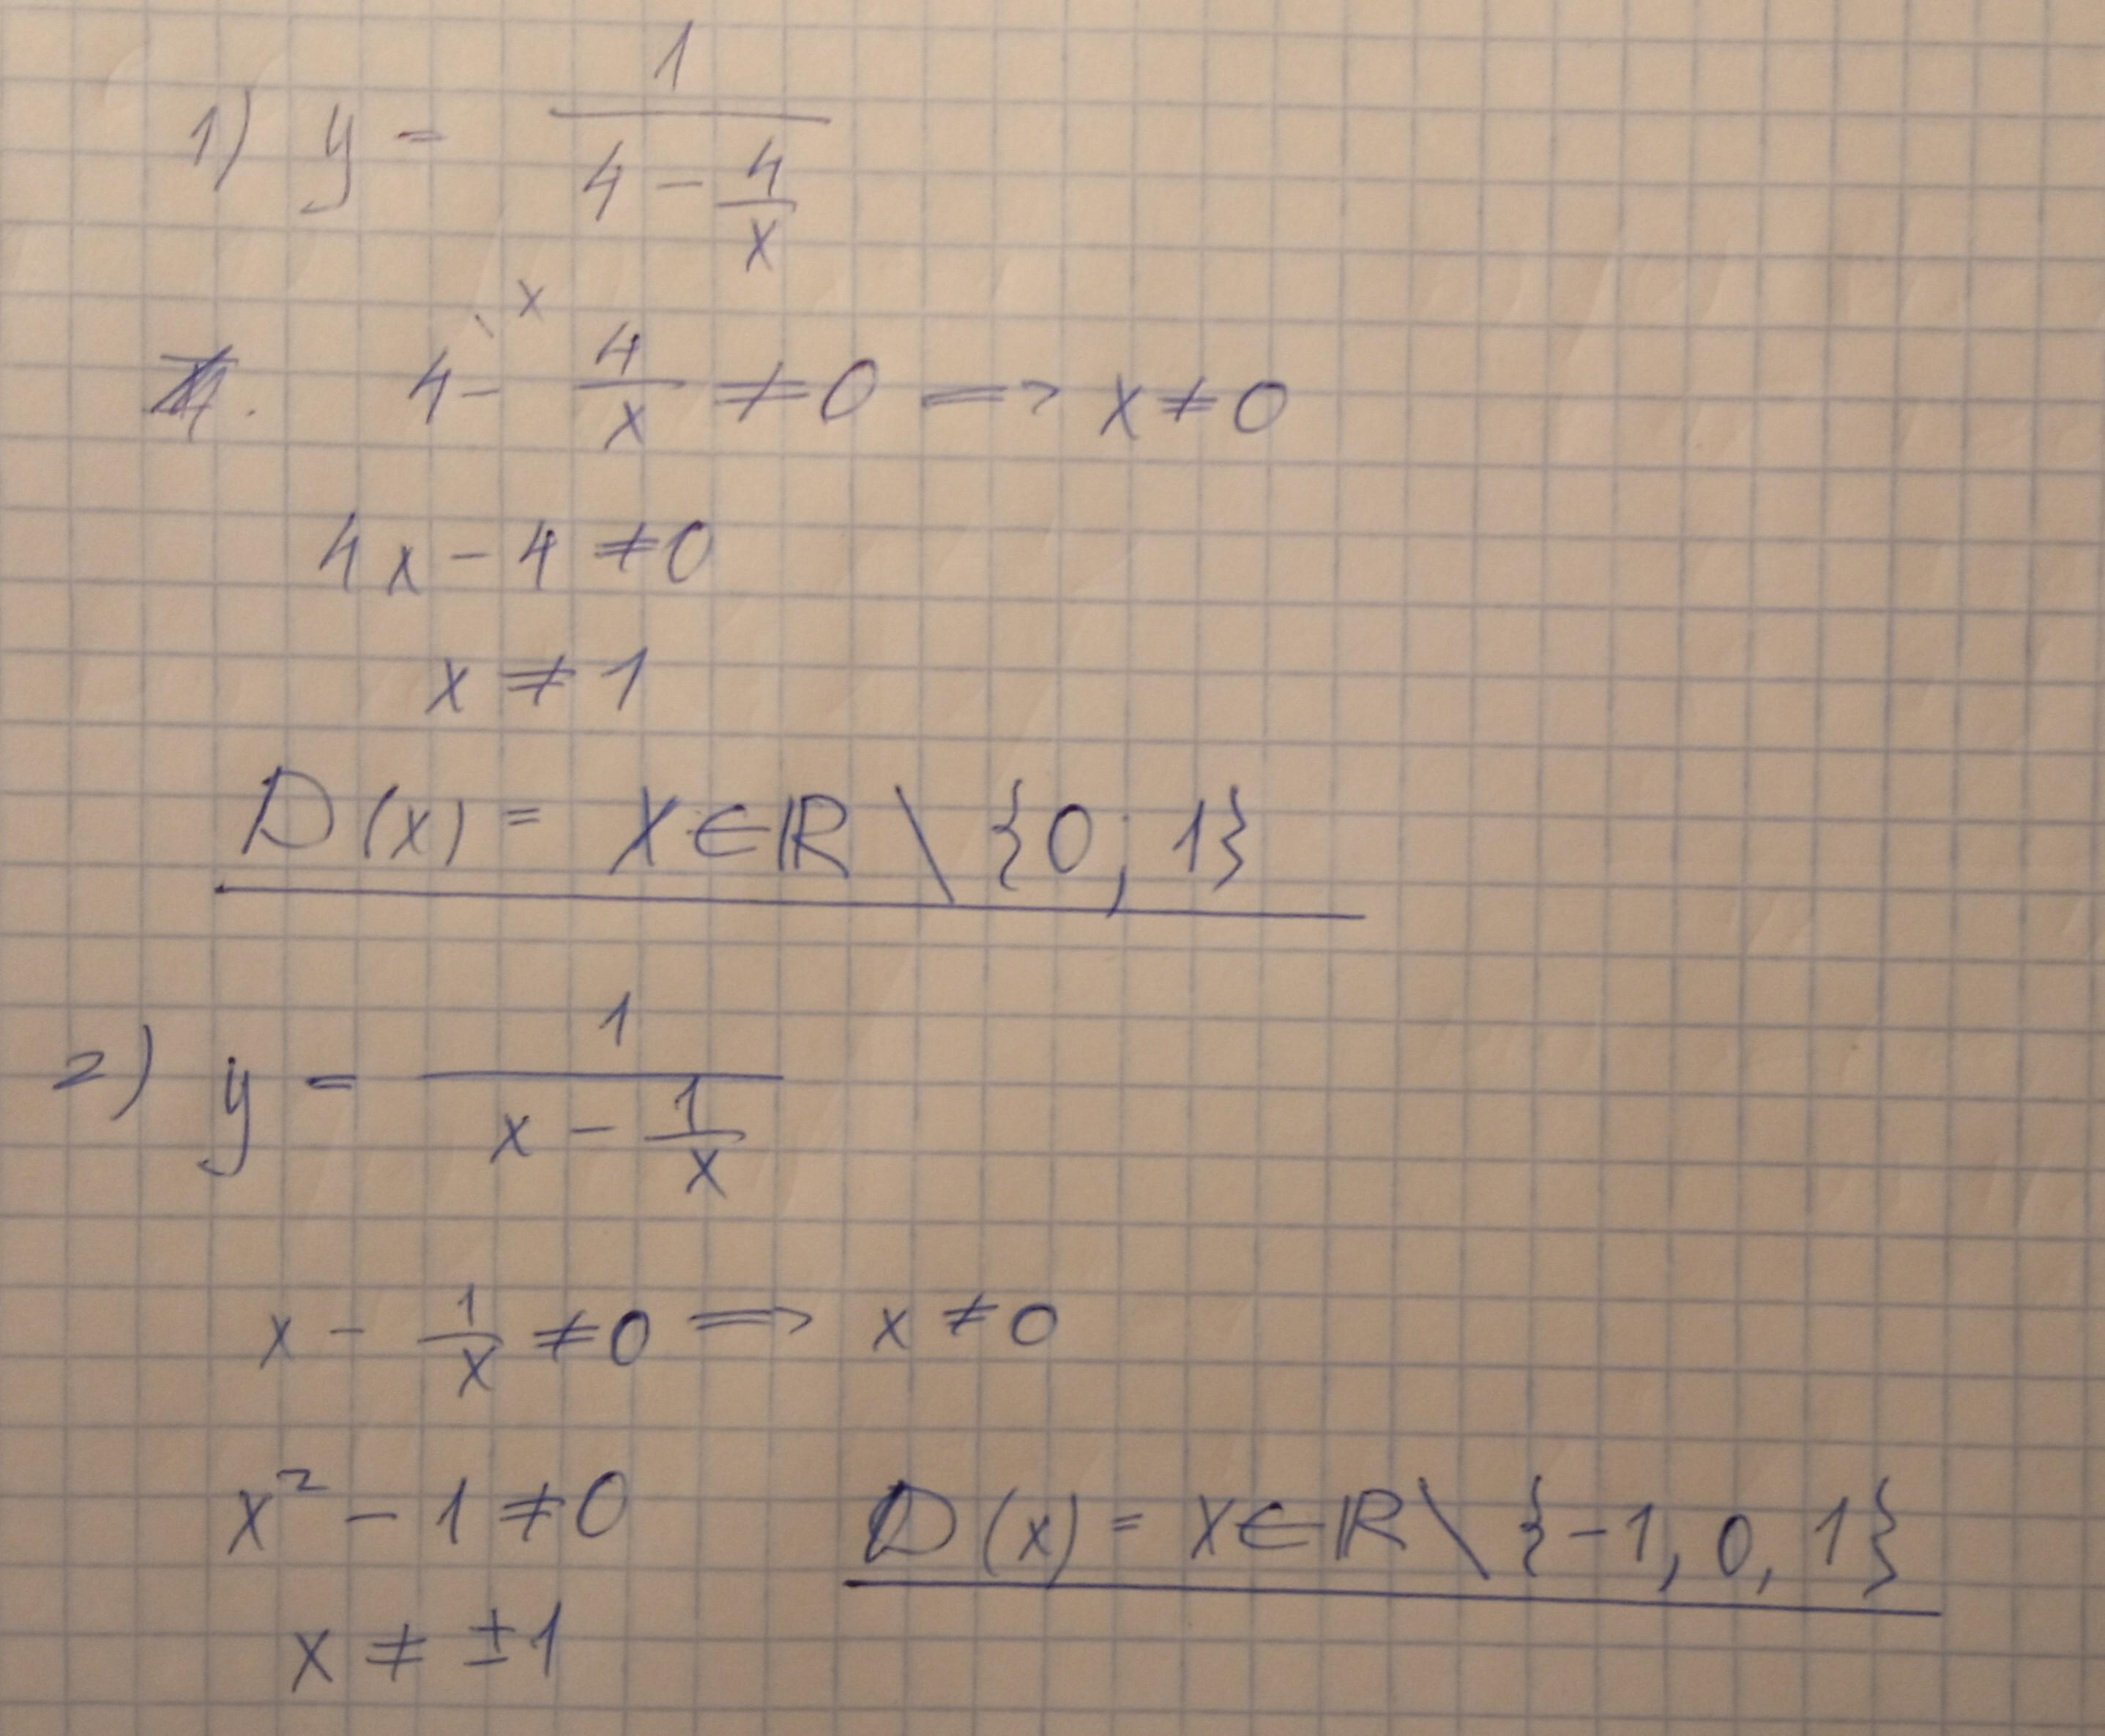 1) y = 1/(4 - 4/x)
4 - 4/x ≠ 0 => x ≠ 0
x
4x - 4 ≠ 0
x ≠ 1
D(x) = x∈ℝ \ {0; 1}
2) y = 1/(x - 1/x)
x - 1/x ≠ 0 => x ≠ 0
x² - 1 ≠ 0
D(x) = x∈ℝ \ {-1, 0, 1}
x ≠ ±1